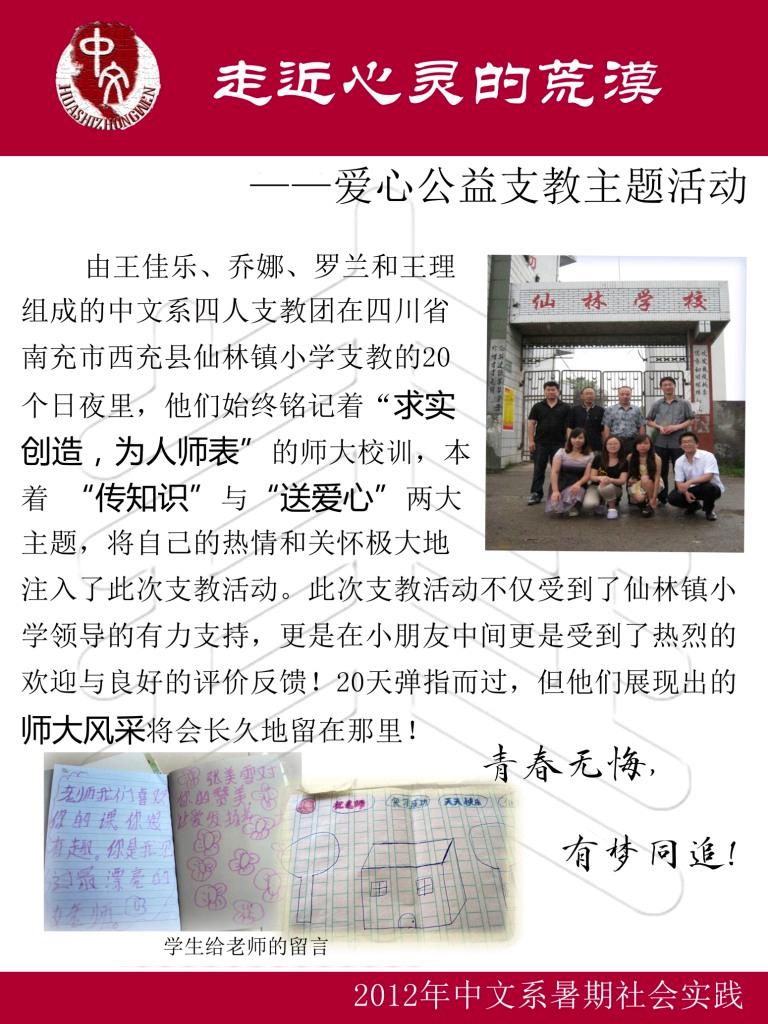 中文
HUASHIZHONGWEN
走近心灵的荒漠
——爱心公益支教主题活动
由王佳乐、乔娜、罗兰和王理
组成的中文系四人支教团在四川省
南充市西充县仙林镇小学支教的20
个日夜里，他们始终铭记着“求实
创造，为人师表”的师大校训，本
着 “传知识”与“送爱心”两大
主题，将自己的热情和关怀极大地
注入了此次支教活动。此次支教活动不仅受到了仙林镇小
学领导的有力支持，更是在小朋友中间更是受到了热烈的
欢迎与良好的评价反馈！20天弹指而过，但他们展现出的
师大风采将会长久地留在那里！
仙林学校
青春无悔，
有梦同追!
老师我们喜欢
你的课，你很
有趣。你是我见
过最漂亮的
女老师。
张美雪对
你的赞美
天天快乐
学生给老师的留言
2012年中文系暑期社会实践